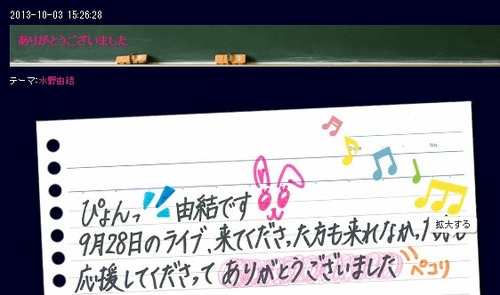 2013-10-03 15:26:28
ありがとうございました
テーマ:水野由結
Date
No.
ぴょんっ 由結です
9月28日のライブ、来てくださった方も来れなかった
拡大する
応援してくださって ありがとうございました ペコリ